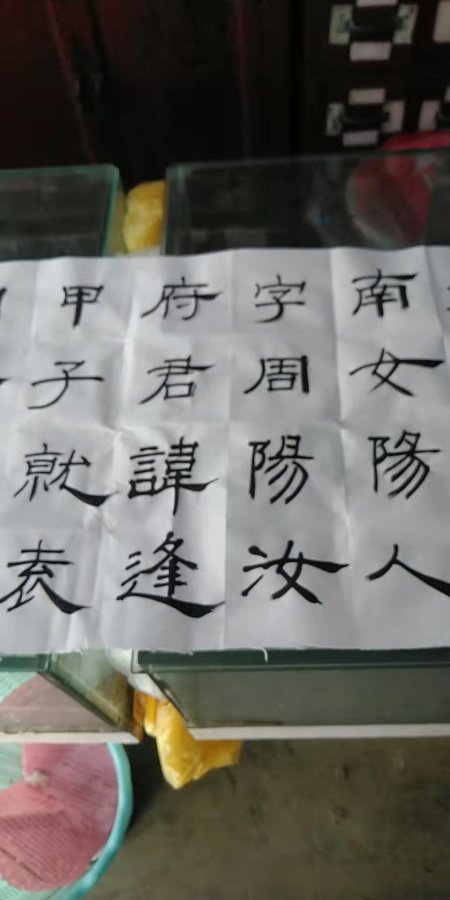 甲子就袁
府君諱逢
字周陽汝
南女陽人